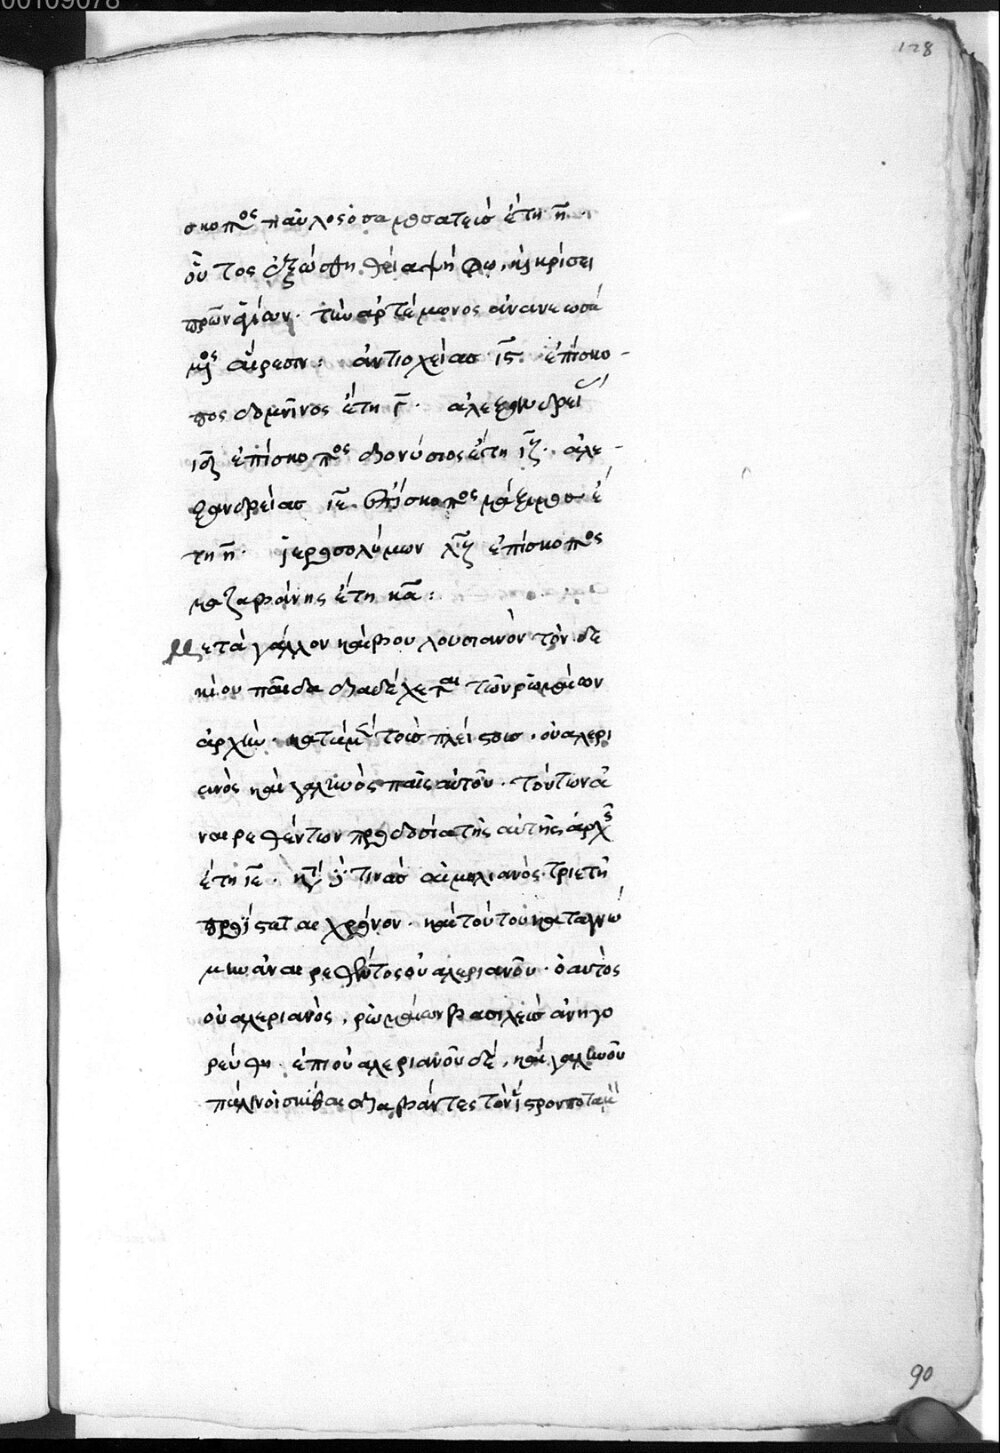 00109078
128
σκοπος παῦλος ὁ σαμοσατεὺς ἔτη η̅.
οὗτος ἐξώσθη θεία ψήφω, καὶ κρίσει
πρῶν ἁγίων. τὴν ἀρτέμωνος ἀνανεωσά
μενος αἵρεσιν: ἀντιοχείας ι̅ς̅ ἐπίσκο-
πος δομνῖνος ἔτη γ̅. ἀλεξανδρεί
ι̅δ̅ ἐπίσκοπος διονύσιος ἔτη ι̅ζ̅. ἀλε-
ξανδρείας ι̅ε̅ ἐπίσκοπος μάξιμος ἔ
τη η̅. ἱεροσολύμων λ̅ζ̅ ἐπίσκοπος
μαζαβάνης ἔτη κ̅α̅:
Μετὰ γάλλον καὶ βουλουσιανὸν τὸν δε
κίου παῖδα διαδέχεται τῶν ῥωμαίων
ἀρχὴν. κατὰ μὲν τοὺς πλείστους. οὐαλερι
ανὸς καὶ γαλιηνὸς παῖς αὐτοῦ. τούτων ἀ
ναιρεθέντων προδοσία τῆς αὐτῆς ἀρχῆς
ἔτη ι̅ε̅. κατὰ δέ τινας αἰμιλιανὸς τριετῆ
προΐσταται χρόνον. καὶ τούτου κατὰ γνώ
μην ἀναιρεθέντος οὐαλεριανοῦ. ὁ αὐτὸς
οὐαλεριανὸς, ῥωμαίων βασιλεὺς ἀνηγο
ρεύθη. ἐπὶ οὐαλεριανοῦ δὲ, καὶ γαλιηνοῦ
πάλιν οἱ σκύθαι διαβάντες τὸν ἴστρον ποταμὸν
90